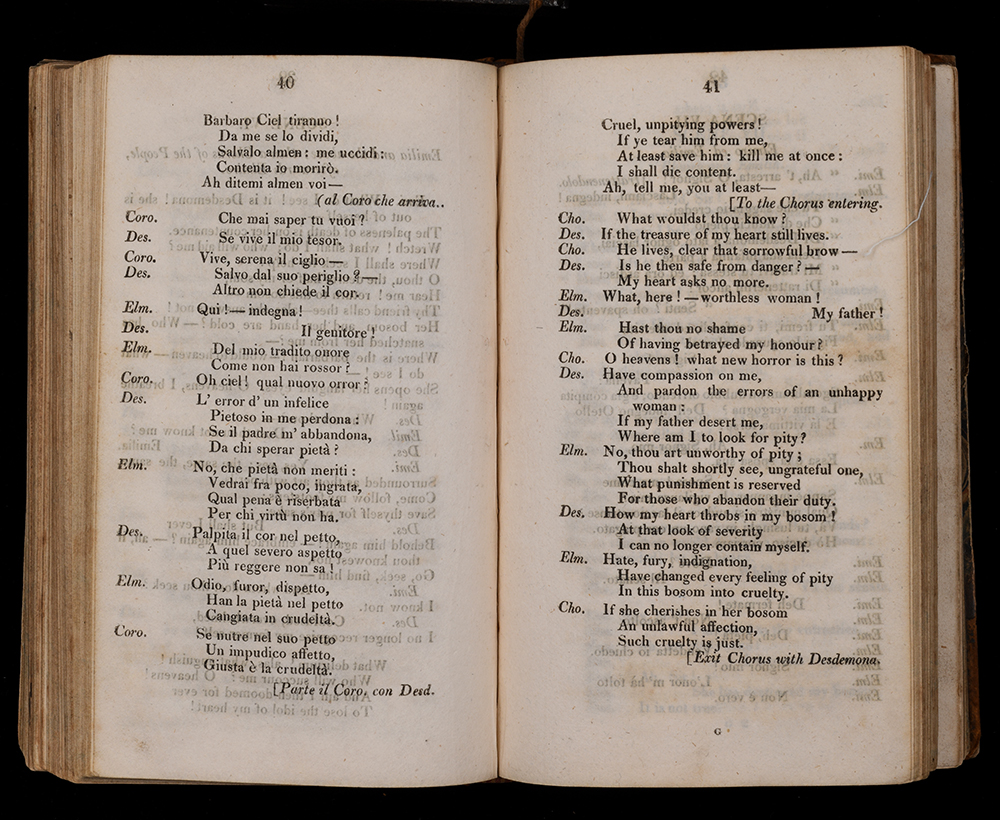 40
Barbaro Ciel tiranno !
Da me se lo dividi,
Salvalo almen : me uccidi :
Contenta io morirò.
Ah ditemi almen voi—
(al Coro che arriva..
Coro. Che mai saper tu vuoi ?
Des. Se vive il mio tesor.
Coro. Vive, serena il ciglio —
Des. Salvo dal suo periglio ?—
Altro non chiede il cor.
Elm. Qui !— indegna !
Des. Il genitore !
Elm. Del mio tradito onore
Come non hai rossor ?
Coro. Oh ciel ! qual nuovo orror ?
Des. L' error d' un infelice
Pietoso in me perdona :
Se il padre m' abbandona,
Da chi sperar pietà ?
Elm. No, che pietà non meriti :
Vedrai fra poco, ingrata,
Qual pena è riserbata
Per chi virtù non ha.
Des. Palpita il cor nel petto,
A quel severo aspetto
Più reggere non sa !
Elm. Odio, furor, dispetto,
Han la pietà nel petto
Cangiata in crudeltà.
Coro. Se nutre nel suo petto
Un impudico affetto,
Giusta è la crudeltà.
[Parte il Coro, con Desd.
41
Cruel, unpitying powers !
If ye tear him from me,
At least save him : kill me at once :
I shall die content.
Ah, tell me, you at least—
[To the Chorus entering.
Cho. What wouldst thou know ?
Des. If the treasure of my heart still lives.
Cho. He lives, clear that sorrowful brow —
Des. Is he then safe from danger ? —
My heart asks no more.
Elm. What, here ! — worthless woman !
Des. My father !
Elm. Hast thou no shame
Of having betrayed my honour ?
Cho. O heavens ! what new horror is this ?
Des. Have compassion on me,
And pardon the errors of an unhappy
woman :
If my father desert me,
Where am I to look for pity ?
Elm. No, thou art unworthy of pity ;
Thou shalt shortly see, ungrateful one,
What punishment is reserved
For those who abandon their duty.
Des. How my heart throbs in my bosom !
At that look of severity
I can no longer contain myself.
Elm. Hate, fury, indignation,
Have changed every feeling of pity
In this bosom into cruelty.
Cho. If she cherishes in her bosom
An unlawful affection,
Such cruelty is just.
[Exit Chorus with Desdemona.
G